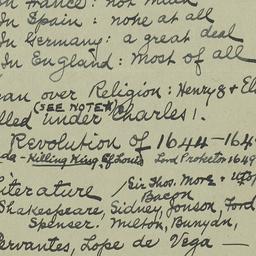 In France: not much
In Spain: none at all
In Germany: a great deal
In England: Most of all
over Religion: Henry 8 + El
(SEE NOTE A)
under Charles I.
Revolution of 1644-164
Killing King cf Louis Lord Protector 1649
Literature Sir Thos. More +
Bacon
Shakespeare, Sidney, Jonson, Ford
Spenser. Milton, Bunyan,
Cervantes, Lope de Vega —